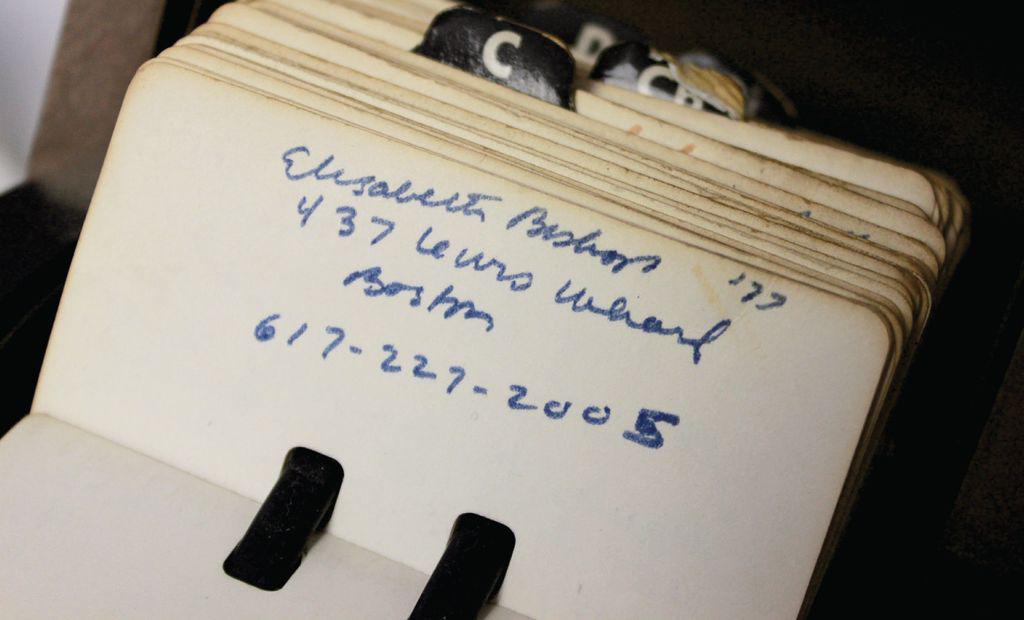 C
CD
Elizabeth Bishop '77
437 Lewis Wharf
Boston
617-227-2005